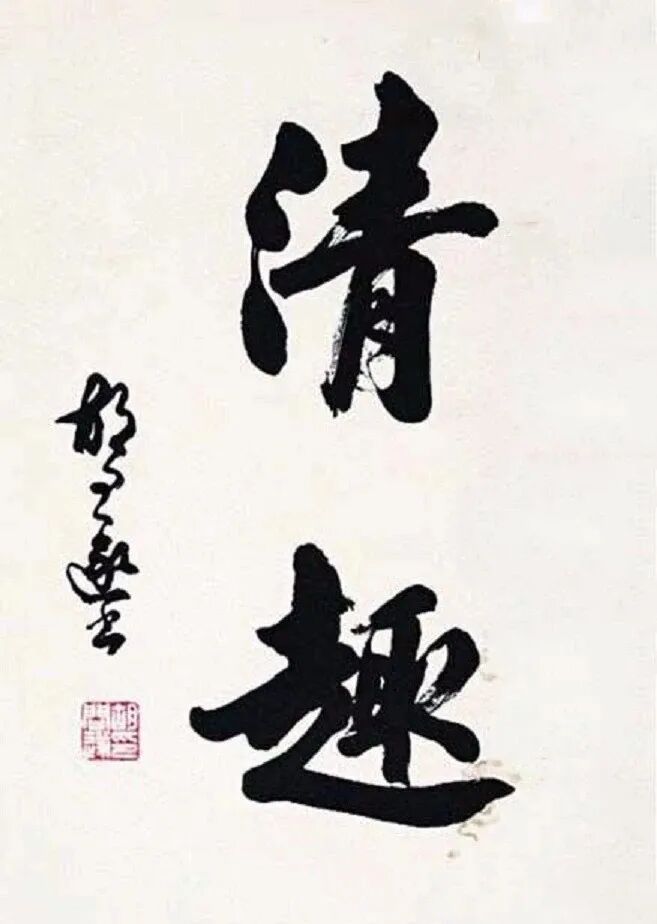 清趣
胡问遂书